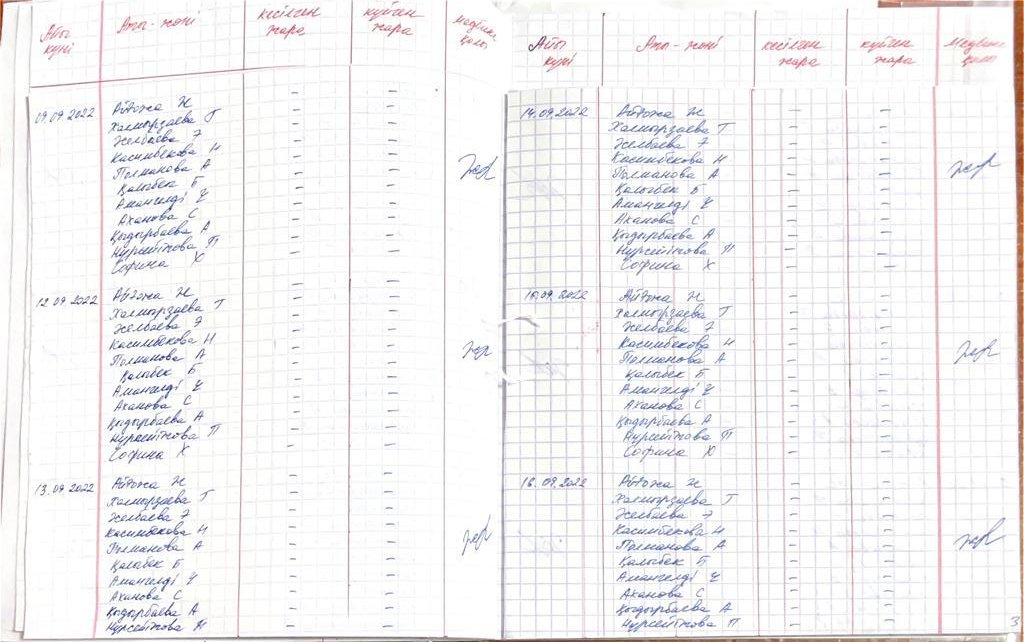 Айы күні Аты-жөні кесілген жара күйген жара медбике қолы
09.09.2022 Айғожа Н - -
Халмырзаева Г - -
Желбаева Э - -
Касимбекова Н - -
Полманова А - -
Қалыбек Б - -
Амангелді Ұ - -
Аханова С - -
Қыдырбаева А - -
Нурсейтова П - -
Софина Х - -
12 09 2022 Айғожа Н - -
Халмырзаева Г - -
Желбаева Э - -
Касимбекова Н - -
Полманова А - -
Қалыбек Б - -
Амангелді Ұ - -
Аханова С - -
Қыдырбаева А - -
Нурсейтова П - -
Софина Х - -
13.09 2022 Айғожа Н - -
Халмырзаева Г - -
Желбаева Э - -
Касимбекова Н - -
Полманова А - -
Қалыбек Б - -
Амангелді Ұ - -
Аханова С - -
Қыдырбаева А - -
Нурсейтова - -
Айы күні Аты-жөні кесілген жара күйген жара Медбике қолы
14.09.2022 Айғожа Н - -
Халмырзаева Г - -
Желбаева Э - -
Касимбекова Н - -
Полманова А - -
Қалыбек Б - -
Амангелді Ұ - -
Аханова С - -
Қыдырбаева А - -
Нурсейтова П - -
Софина Х - -
15.09.2022 Айғожа Н - -
Халмырзаева Г - -
Желбаева Э - -
Касимбекова Н - -
Полманова А - -
Қалыбек Б - -
Амангелді Ұ - -
Аханова С - -
Қыдырбаева А - -
Нурсейтова П - -
Софина - -
16.09.2022 Айғожа Н - -
Халмырзаева Г - -
Желбаева Э - -
Касимбекова Н - -
Полманова А - -
Қалыбек Б - -
Амангелді Ұ - -
Аханова С - -
Қыдырбаева А - -
Нурсейтова П - -
3